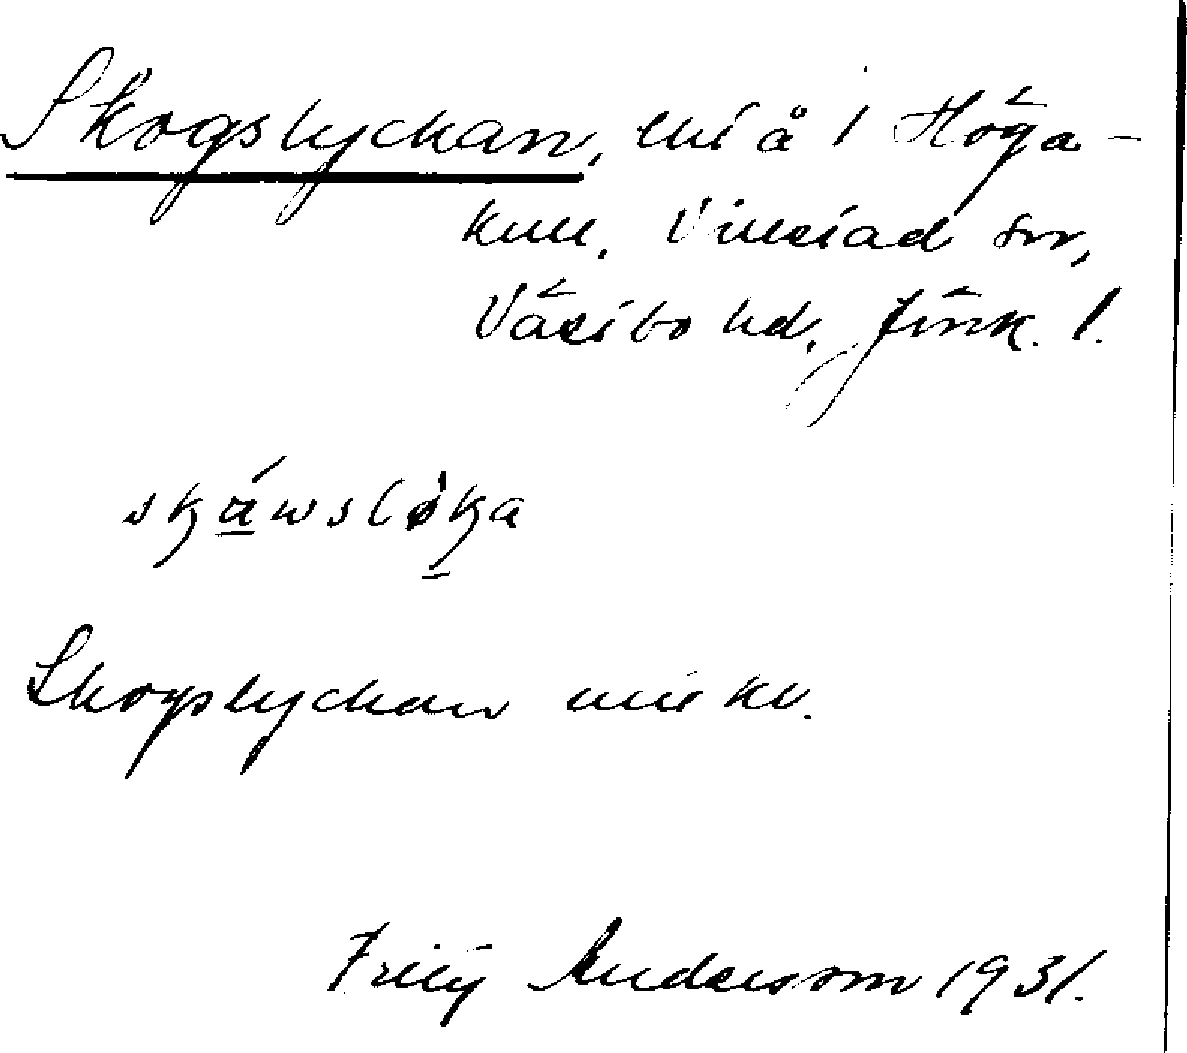 Skogslyckan, lht å 1 Höga-
kull, Villstad sn,
Västbo hd, Jönk. l.
skáwsløka
Skogslyckan
Fritz Andersson 1931.